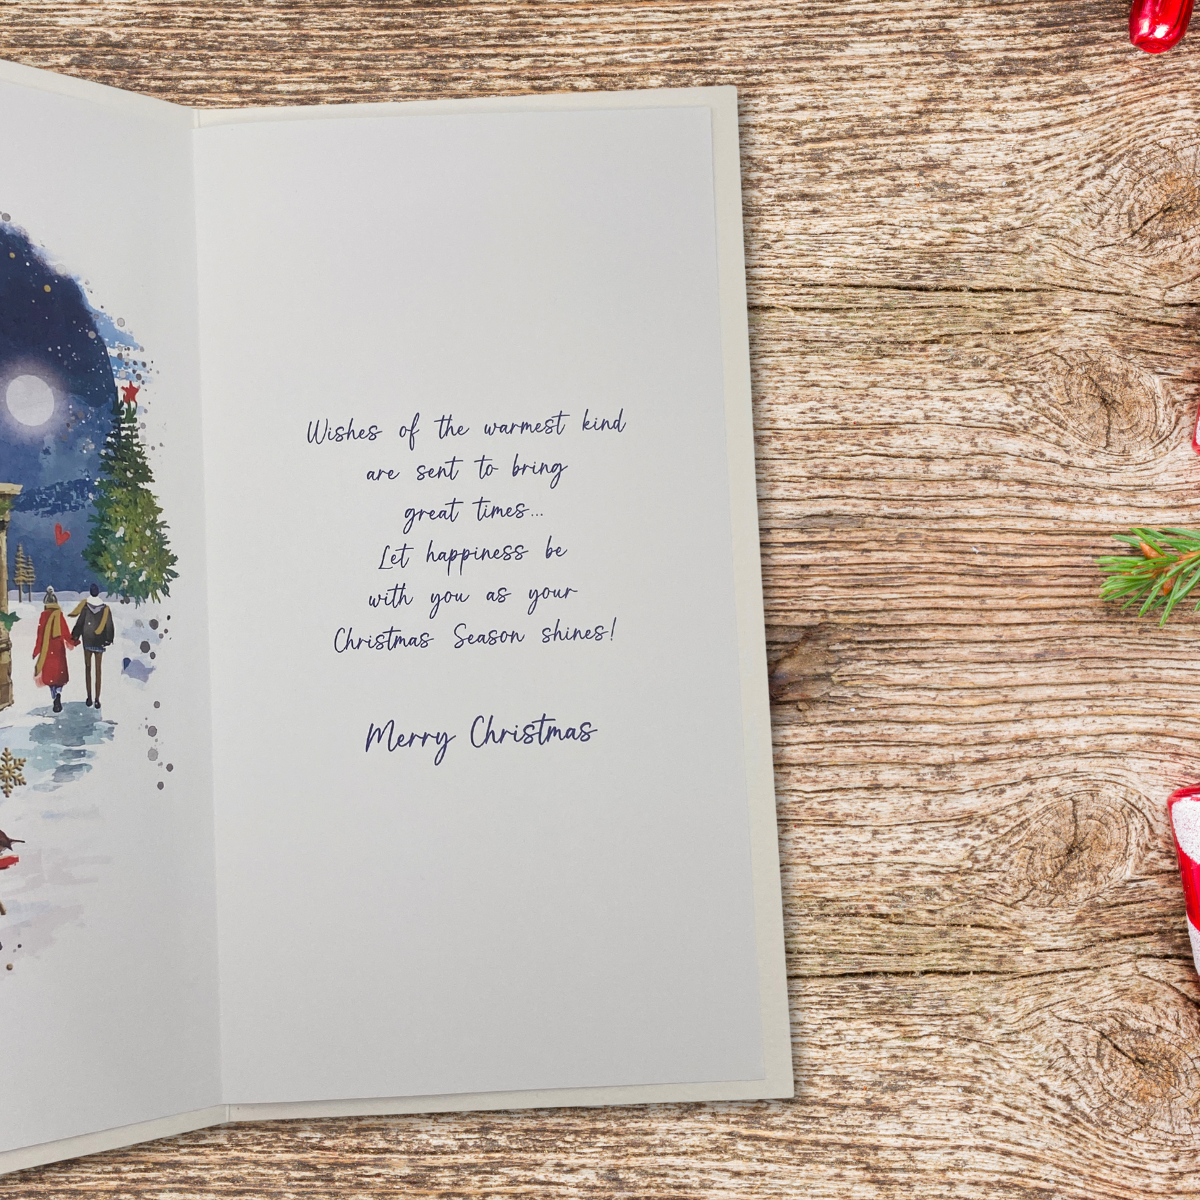 Wishes of the warmest kind
are sent to bring
great times...
Let happiness be
with you as your
Christmas Season shines!
Merry Christmas